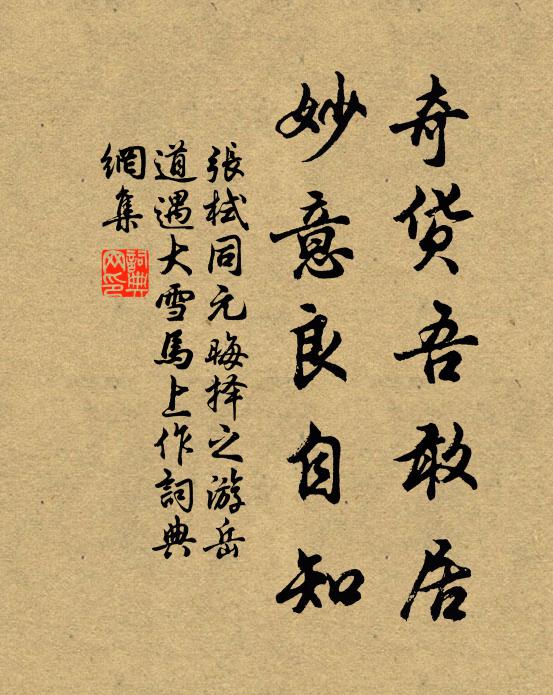 奇货吾敢居
妙意良自知
張栻同元晦择之游岳
道遇大雪馬上作詞典
網集
詞典網印